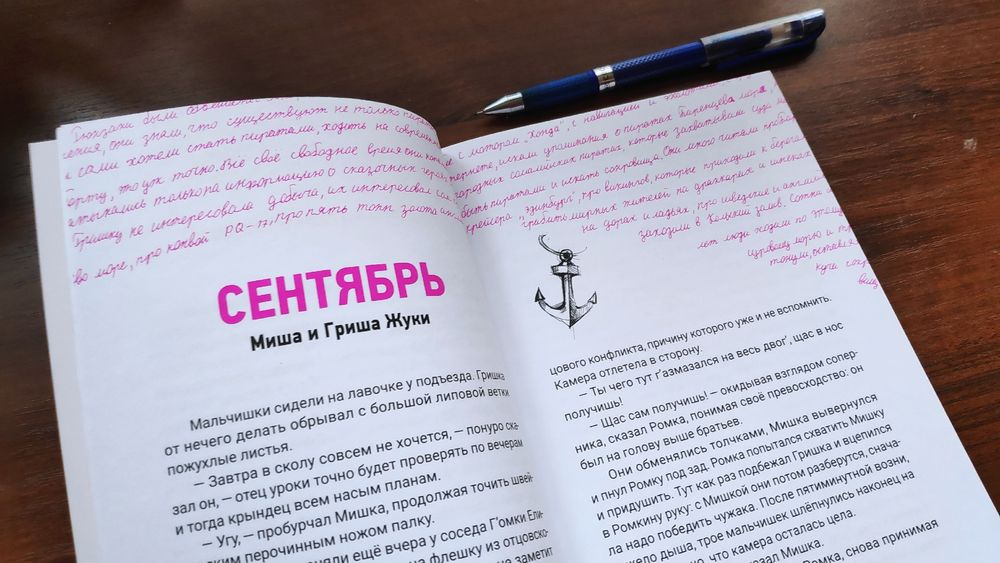 Рюкзаки были
они знали, что существуют не только
и сами хотели стать пиратами, ходить на
то уж точно. Всё своё свободное время они
только на информацию о сказочных
Гришку не интересовала добыча, их интересовал
во море, про конвой PQ-17, про пять тонн золота
СЕНТЯБРЬ
Миша и Гриша Жуки
Мальчишки сидели на лавочке у подъезда. Гришка
от нечего делать обрывал с большой липовой ветки
пожухлые листья.
— Завтра в сколу совсем не хочется, — понуро ска-
зал он, — отец уроки точно будет проверять по вечерам
и тогда крындец всем насым планам.
— Угу, — пробурчал Мишка, продолжая точить швей-
ким перочинным ножом палку.
ещё вчера у соседа Г'омки Ели-
на флешку из отцовско-
заметит
с мотором „Хонда", с навигацией и
искали упоминания о пиратах Баренцева моря,
сомалийских пиратах, которые захватывали суда
быть пиратами и искать сокровища. Они много читали про
крейсера „Эдинбург", про викингов, которые приходили к берегам
грабить мирных жителей на драккарах и шнеках
на дорах и ладьях, про шведские и
заходили в Кольский залив. Сотни
лет люди ходили по этому
морю и
тонули, оставляя
кучи
цового конфликта, причину которого уже и не вспомнить.
Камера отлетела в сторону.
— Ты чего тут г'азмазался на весь двог', щас в нос
получишь!
— Щас сам получишь! — окидывая взглядом сопер-
ника, сказал Ромка, понимая своё превосходство: он
был на голову выше братьев.
Они обменялись толчками, Мишка вывернулся
и пнул Ромку под зад. Ромка попытался схватить Мишку
и придушить. Тут как раз подбежал Гришка и вцепился
в Ромкину руку: с Мишкой они потом разберутся, снача-
ла надо победить чужака. После пятиминутной возни,
дыша, трое мальчишек шлёпнулись наконец на
что камера осталась цела.
Мишка.
Ромка, снова принимая